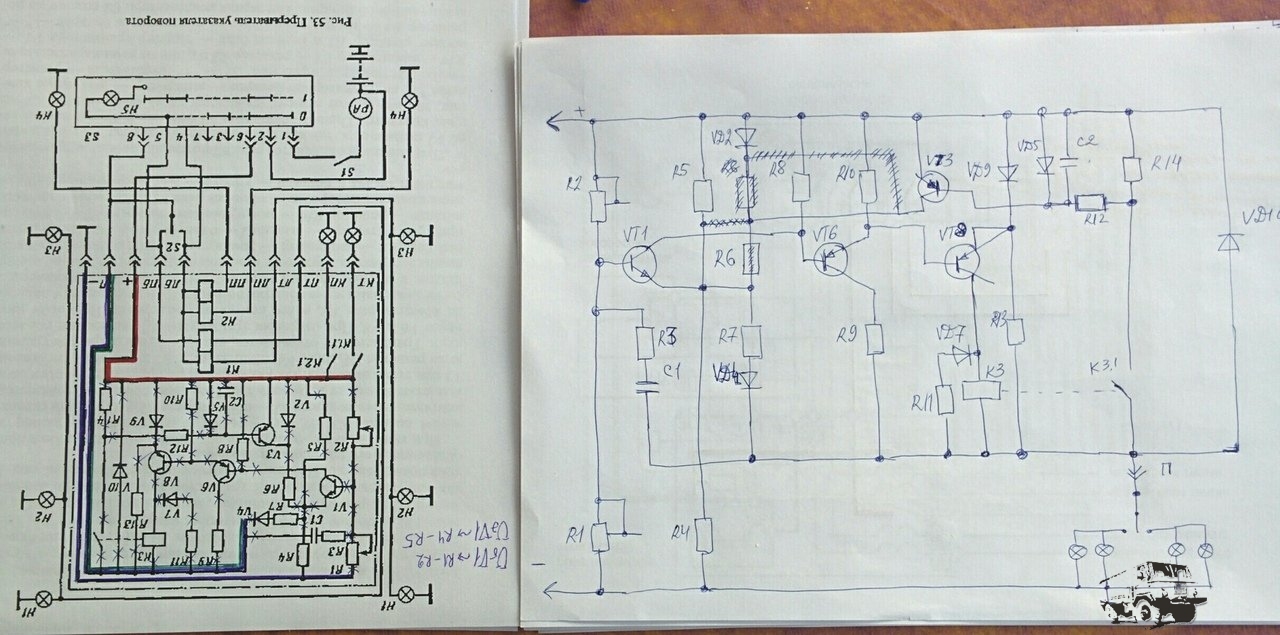 Рис. 53. Прерыватель указателя поворота
H4
H5
1
0
PA
H4
S3
8
5
4
7
3
6
2
1
S1
H3
S2
H3
−
П
+
ПБ
ЛБ
ПП
ЛП
ЛТ
ПТ
КП
КТ
K2
K1
K2.1
K1.1
R14
V9
R10
V5
C2
V2
R12
R8
V3
R5
R2
V10
V8
V6
R6
V1
H2
R13
V7
V4
R7
C1
H2
K3
R11
R9
R4
R3
R1
H1
H1
UбV1 ~ R1-R2
UэV1 ~ R4-R5
+
VD2
R2
R5
R8
R10
VT3
VD9
VD5
C2
R14
R12
VD10
VT1
R6
VT6
VT8
R3
C1
R7
VD4
R9
VD7
R11
K3
R13
K3.1
П
R1
R4
−